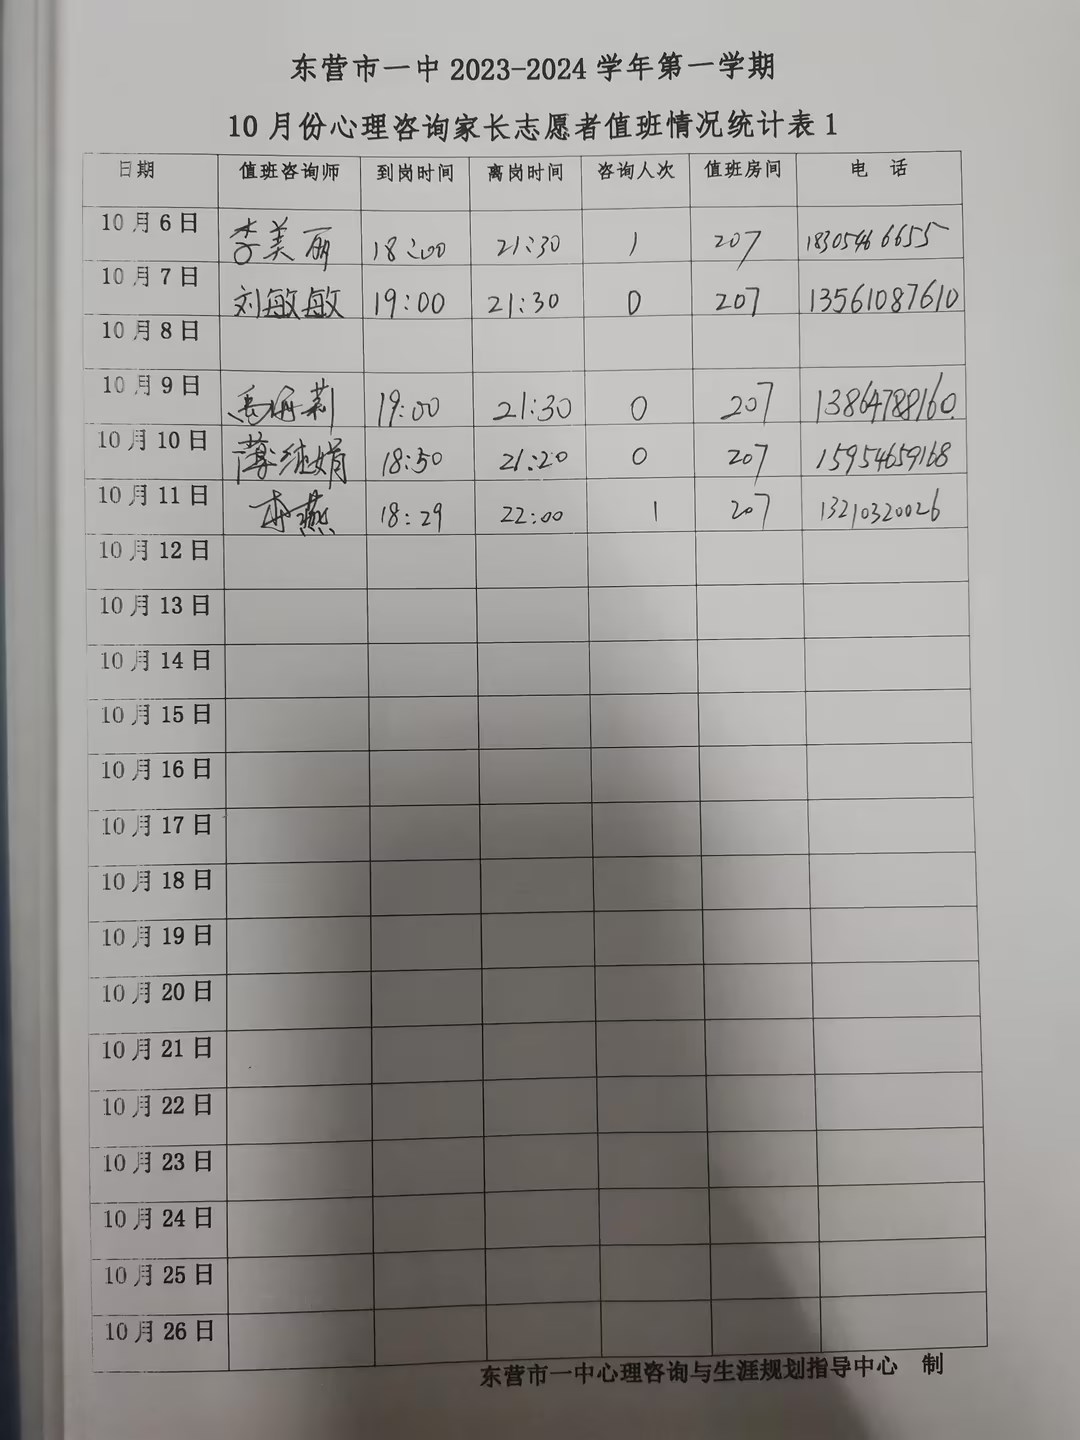 东营市一中 2023-2024 学年第一学期
10 月份心理咨询家长志愿者值班情况统计表 1
日期 值班咨询师 到岗时间 离岗时间 咨询人次 值班房间 电 话
10 月 6 日 李美丽 18:00 21:30 1 207 18305466655
10 月 7 日 刘敏敏 19:00 21:30 0 207 13561087610
10 月 8 日
10 月 9 日 19:00 21:30 0 207 13864788160
10 月 10 日 薄继娟 18:50 21:20 0 207 15954659168
10 月 11 日 李燕 18:29 22:00 1 207 13210320026
10 月 12 日
10 月 13 日
10 月 14 日
10 月 15 日
10 月 16 日
10 月 17 日
10 月 18 日
10 月 19 日
10 月 20 日
10 月 21 日
10 月 22 日
10 月 23 日
10 月 24 日
10 月 25 日
10 月 26 日
东营市一中心理咨询与生涯规划指导中心 制